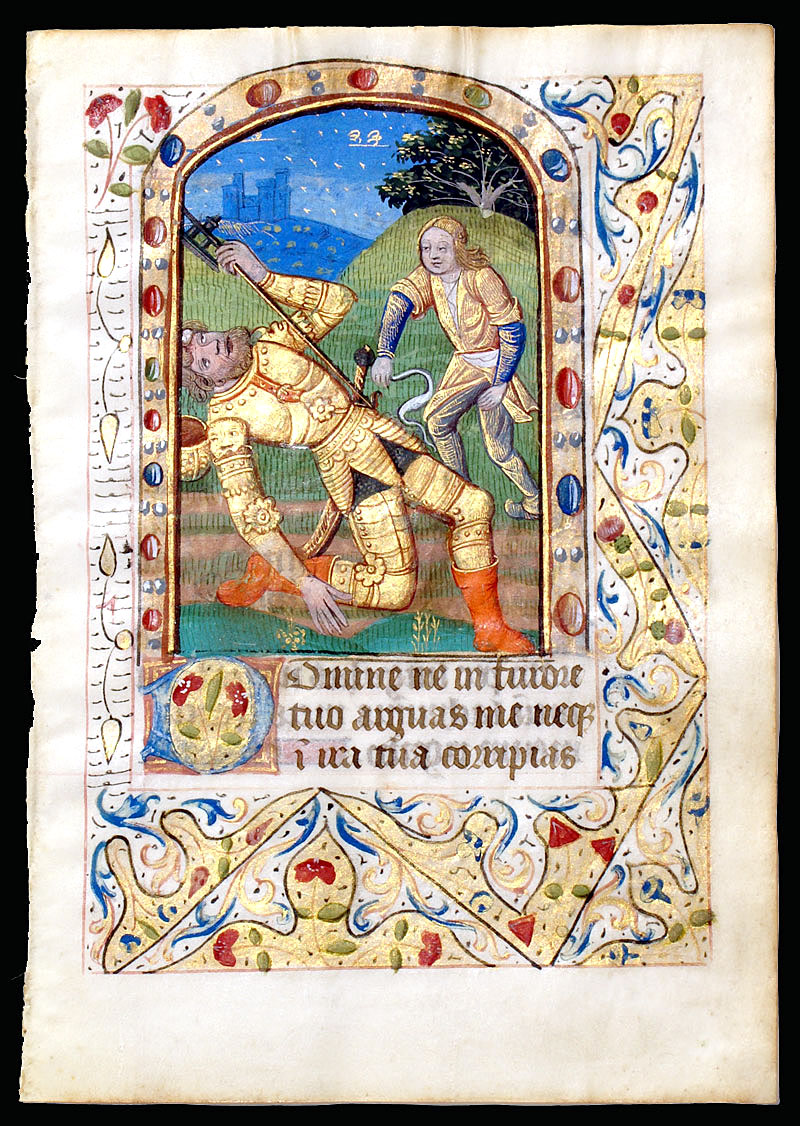 Domine ne in furore
tuo arguas me neqꝫ
ī ira tua corripias